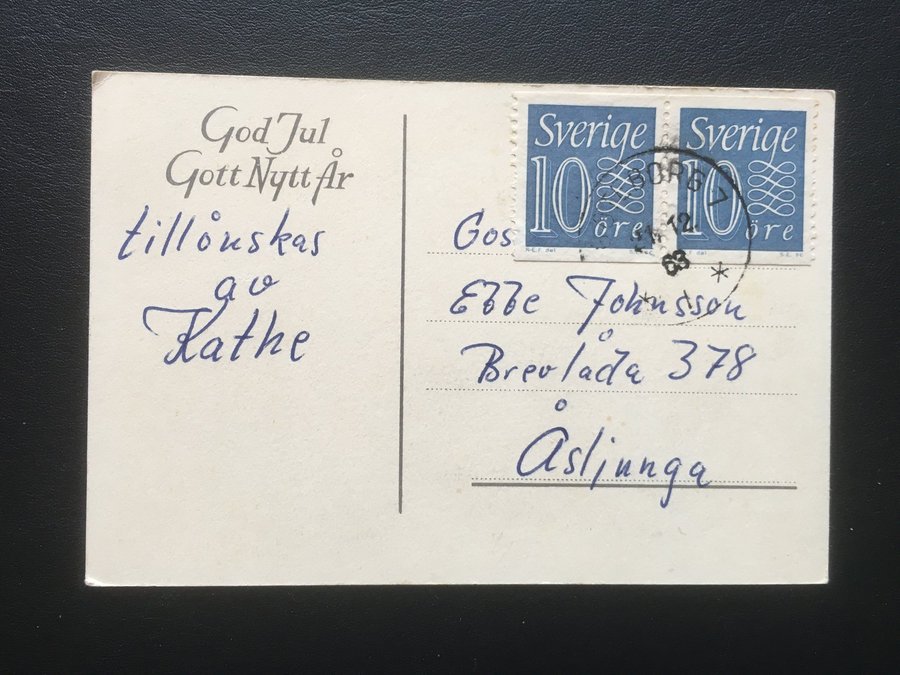 God Jul
Gott Nytt År
tillönskas
av
Kathe
Sverige
10
öre
Sverige
10
öre
BORG 7
21 12
63
Gos
Ebbe Johnsson
Brevlåda 378
Åsljunga